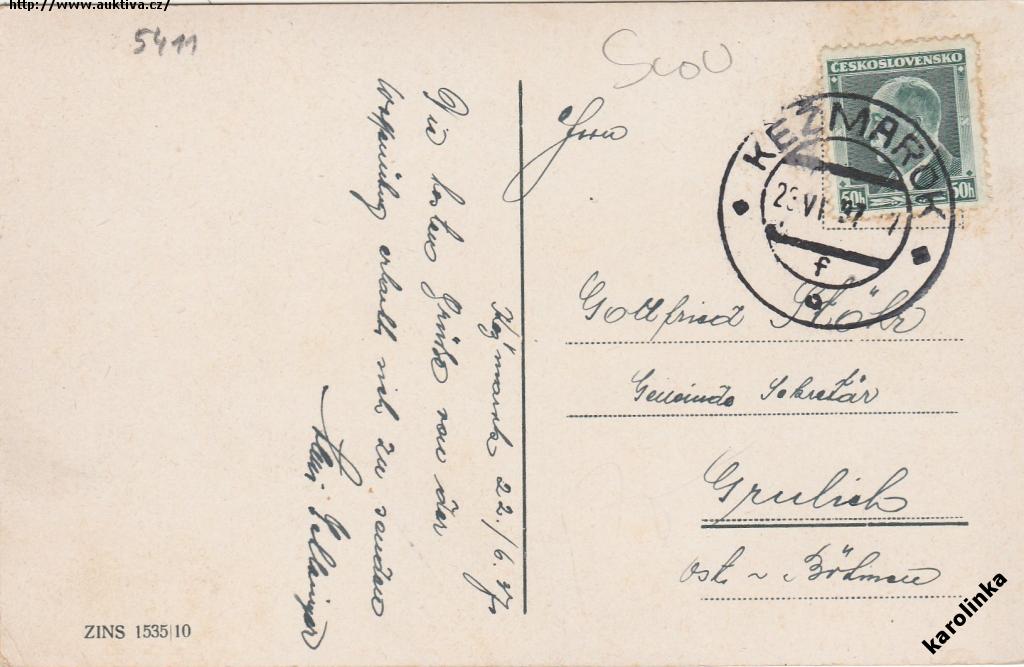 http://www.auktiva.cz/
5411
Scou
ČESKOSLOVENSKO
50h 50h
KEŽMAROK
23 VI 37
f
Kežmark 22./6. 37.
Die besten Grüße von der
erlaubt sich zu senden
Herrn
Gottfried
Gemeinde Sekretär
Grulich
Böhmen
ZINS 1535|10
karolinka